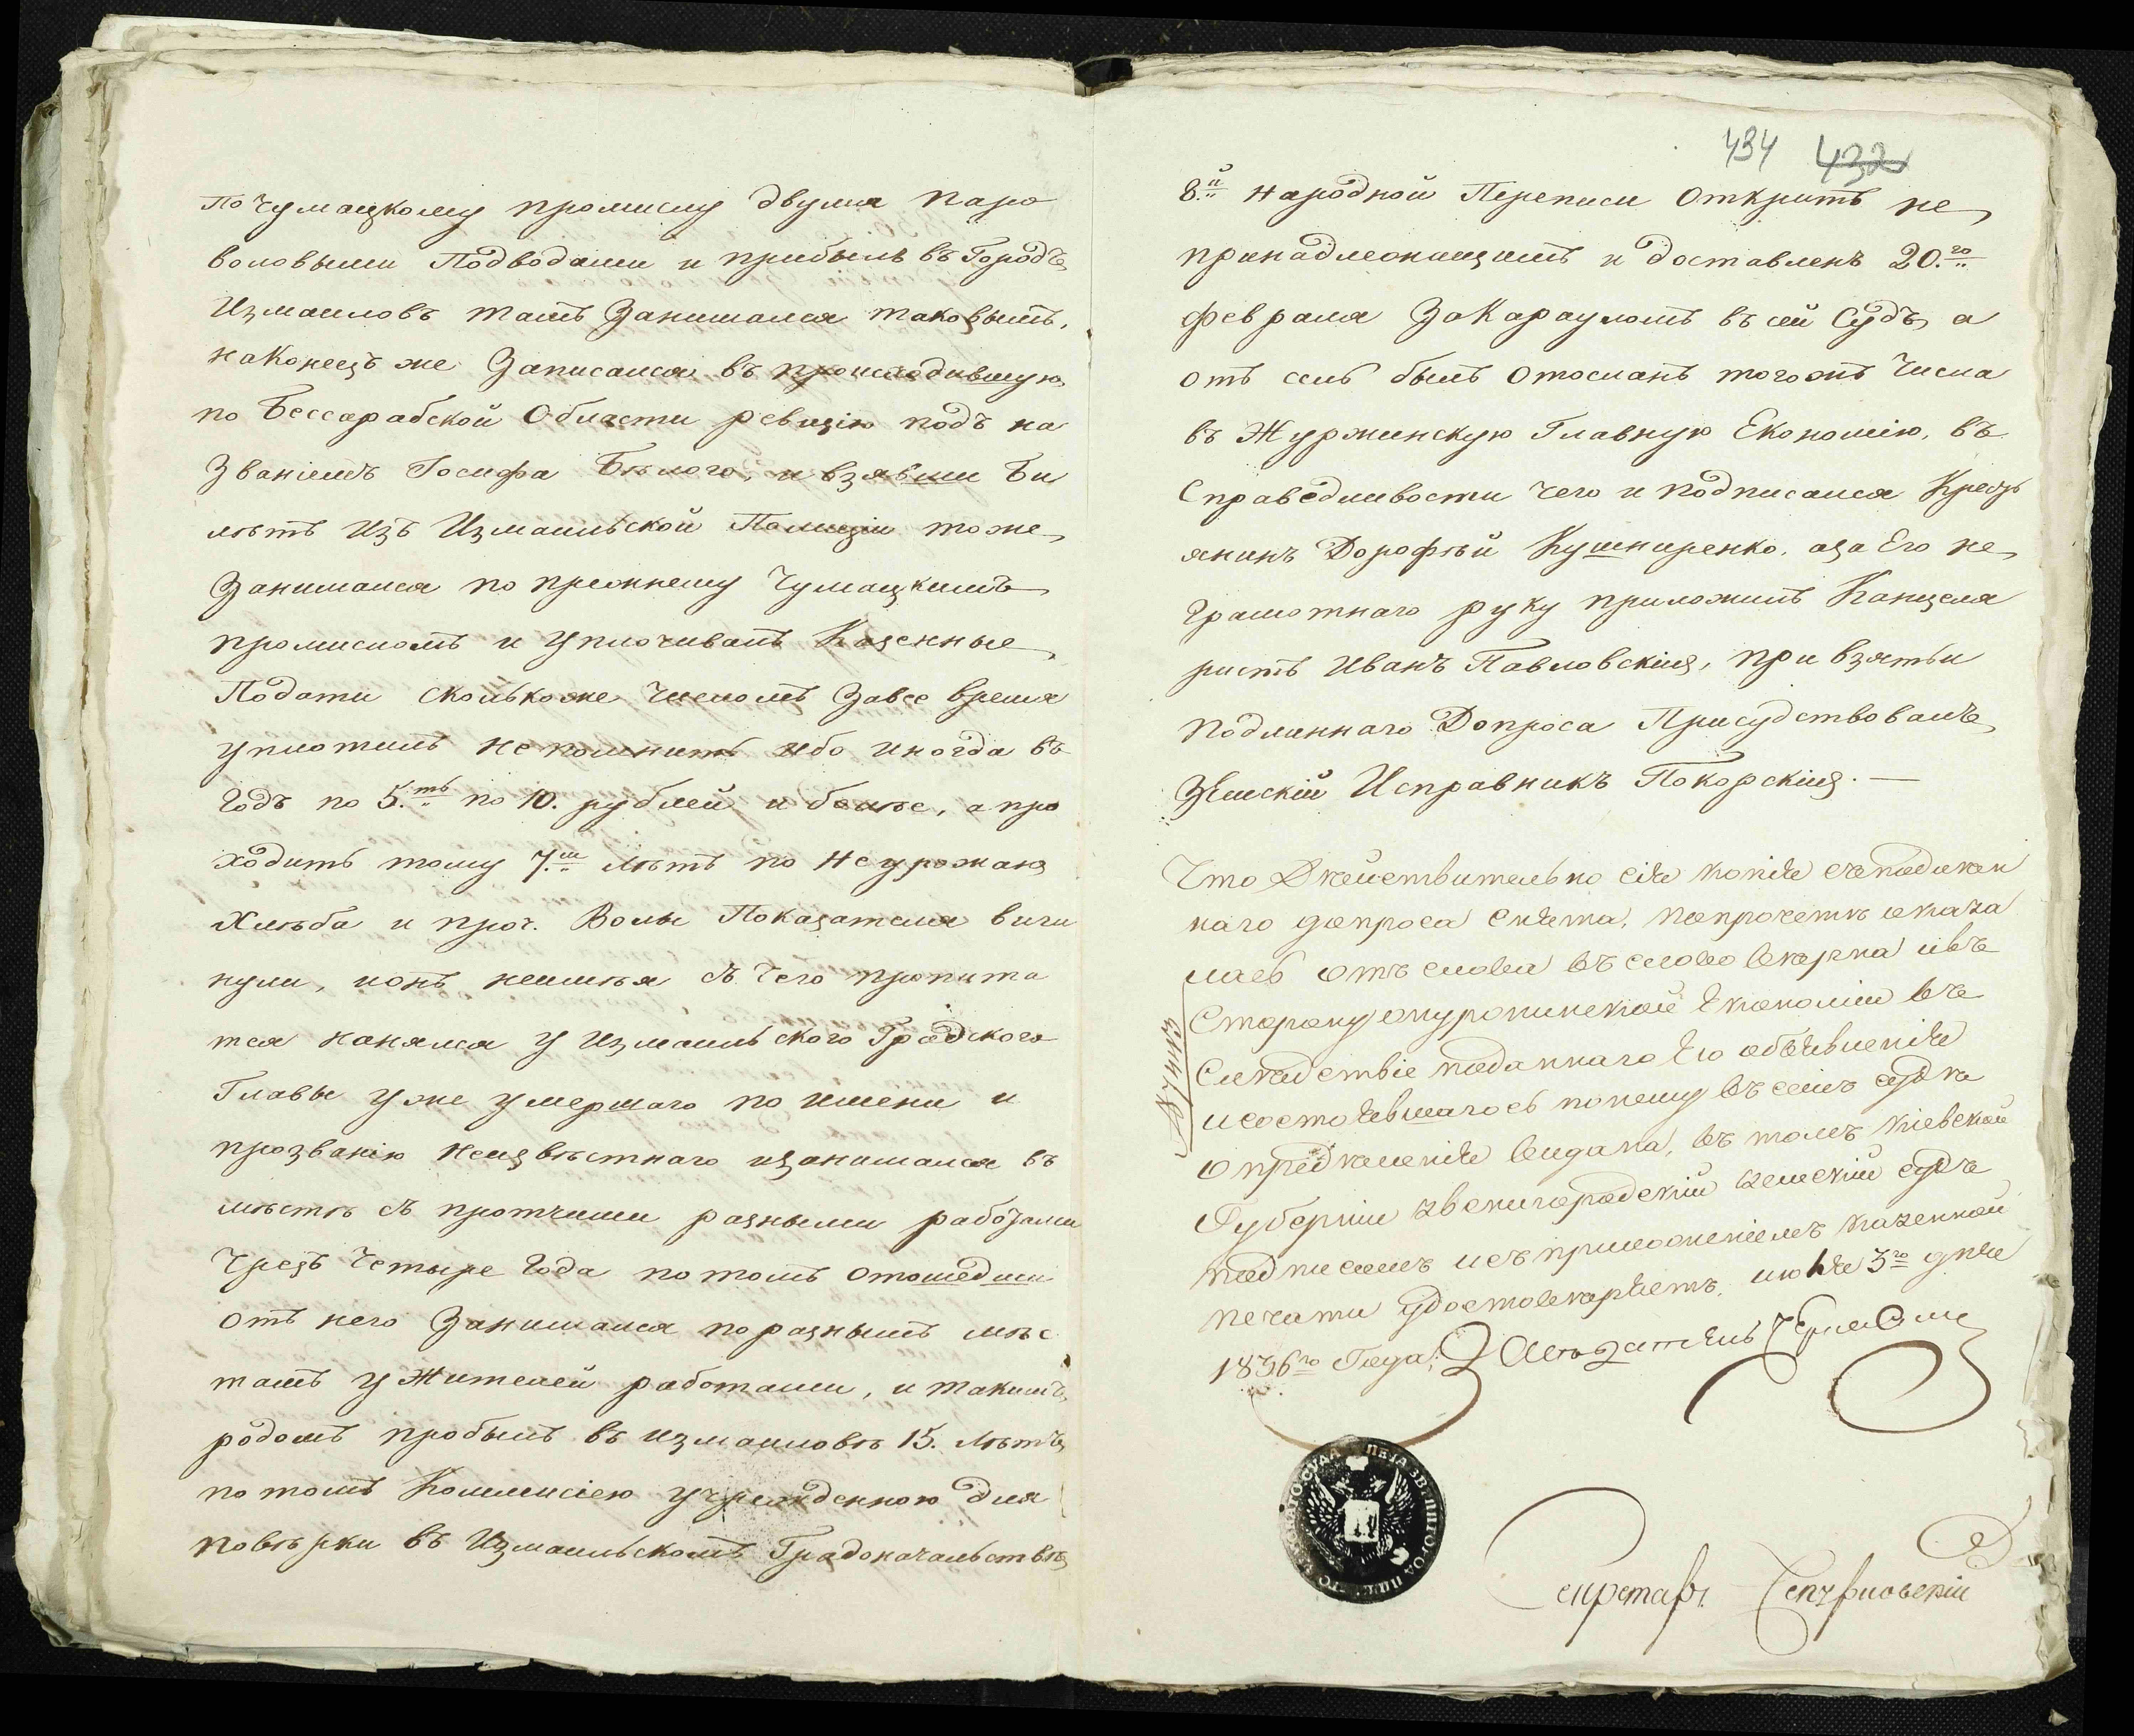 по Чумацкому промислу двумя паро
воловыми Подводами и прибылъ въ Городъ
Измаиловъ тамъ Занимался таковымъ,
наКонецъ же Записался въ происходившую
по Бессарабской Области ревизію подъ на
Званіемъ Іосифа Бѣлого, и взявши Би
лѣтъ Изъ Измаильской Полиціи тоже
Занимался по прежнему Чумацкимъ
промисломъ и уплочивалъ Казенные
Подати сколькоже Числомъ Завсе время
уплотилъ непомнитъ ибо иногда въ
Годъ по 5.ть по 10. рублей и болѣе, а про
ходитъ тому 7.ш лѣтъ по Неурожаю
Хлѣба и проч. Волы Показателя виги
нули, ионъ неимѣя съ Чего пропита
тся нанялся у Измаильского Градского
Главы уже умершаго по имени и
прозванію Неизвѣстнаго изанимался въ
мѣстѣ съ протчими разными работами
Чрезъ Четыре Года потомъ отошедши
отъ него Занимался поразнымъ мѣс
тамъ у Жителей работами, и такимъ
родомъ пробылъ въ измаиловѣ 15. лѣтъ
потомъ Коммисіею учрежденною для
повѣрки въ Измаильскомъ Градоначальствѣ
434 432
8.й народной Переписи Открытъ не
принадлежащимъ и доставленъ 20.го
февраля ЗаКарауломъ въ сей Судъ, а
отъ селъ былъ Отосланъ тогожъ Числа
въ Журжинскую Главную Економію, въ
Справедливости чего и подписался Крестъ
янинъ Дорофѣй Кушниренко, аза Его не
Грамотнаго руку приложилъ Канцеля
ристъ Иванъ Павловскій, при взятьи
подлиннаго Допроса Присудствовалъ
Земскій Исправникъ Покорскій. —
Что Дѣйствительно сія копія съподлин
наго допроса снята, попрочетѣ оказа
лась отъ слова въ слово вѣрна ивъ
Сторону Економіи въ
Слѣдствіе поданнаго Ею объявленія
исостоявшагось потому въ семъ судѣ
опредѣленія видана, въ томъ Кіевской
Губерніи звенигородскій земскій судъ
подписомъ исъ приложеніемъ казенной
печати удостовѣряетъ, июня 3го дня
1836го Года; Засѣдатель
Секретарь